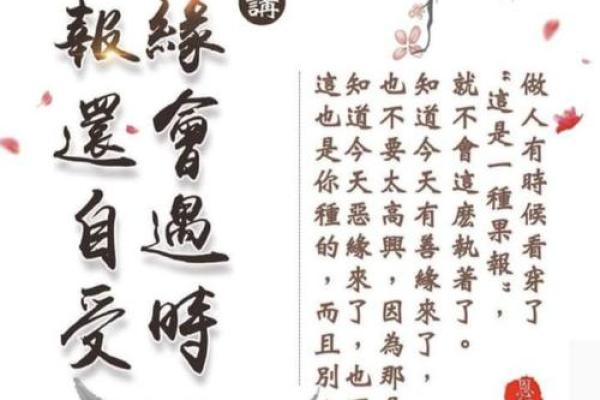 做人有時候看穿了
“這是一種果報”，
就不會這麼執著了。
知道今天有善緣來了，
也不要太高興，因為那
知道今天惡緣來了，也
這也是你種的，而且別
講
緣會遇時
報還自受
恩